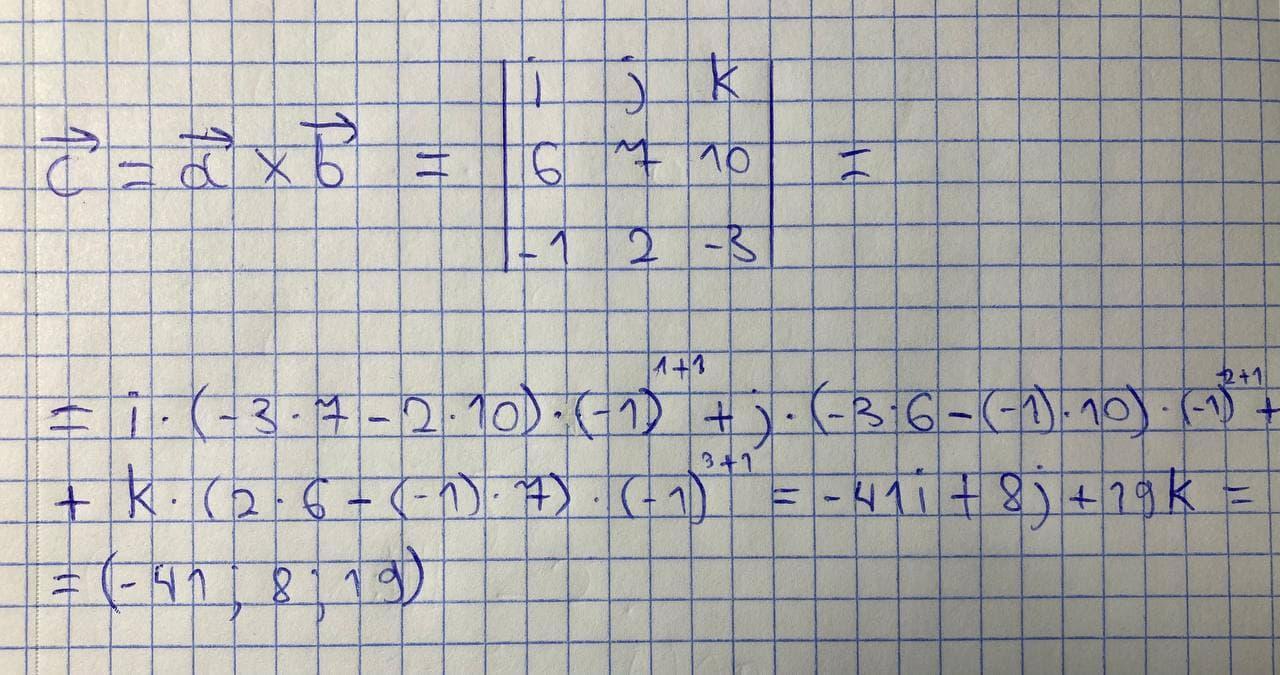 i j k
c⃗ = a⃗ × b⃗ = | 6 7 10 | =
-1 2 -3
= i · (-3 · 7 - 2 · 10) · (-1)¹⁺¹ + j · (-3 · 6 - (-1) · 10) · (-1)²⁺¹ +
+ k · (2 · 6 - (-1) · 7) · (-1)³⁺¹ = -41i + 8j + 19k =
= (-41 ; 8 ; 19)